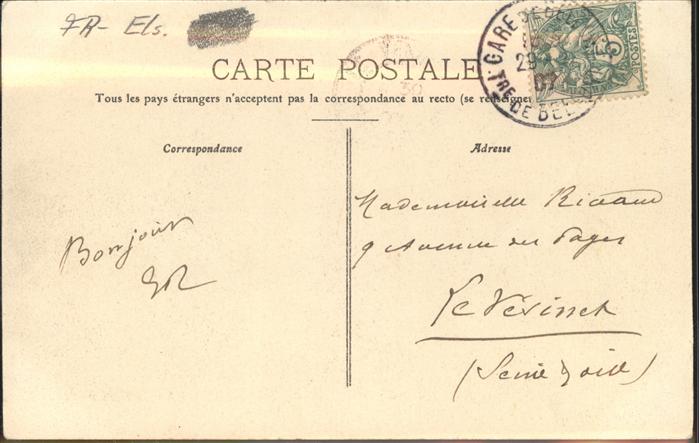 FR- Els.
CARTE POSTALE
Tous les pays étrangers n'acceptent pas la correspondance au recto (se renseigner
GARE DE
29
07
DE BEL
5
POSTES
Correspondance
Adresse
Bonjour
Mademoiselle Rivaud
9 Avenue des Pages
Le Vésinet
(Seine & Oise)